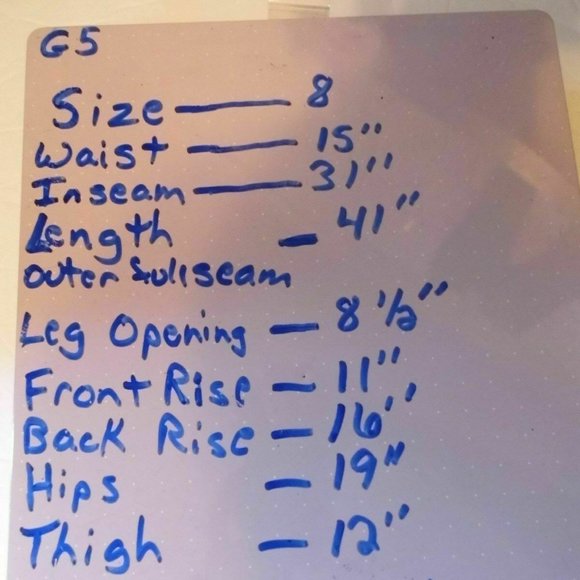 G5
Size — 8
Waist — 15"
Inseam — 31"
Length - 41"
outer full seam
Leg Opening - 8 1/2"
Front Rise - 11"
Back Rise - 16"
Hips - 19"
Thigh - 12"